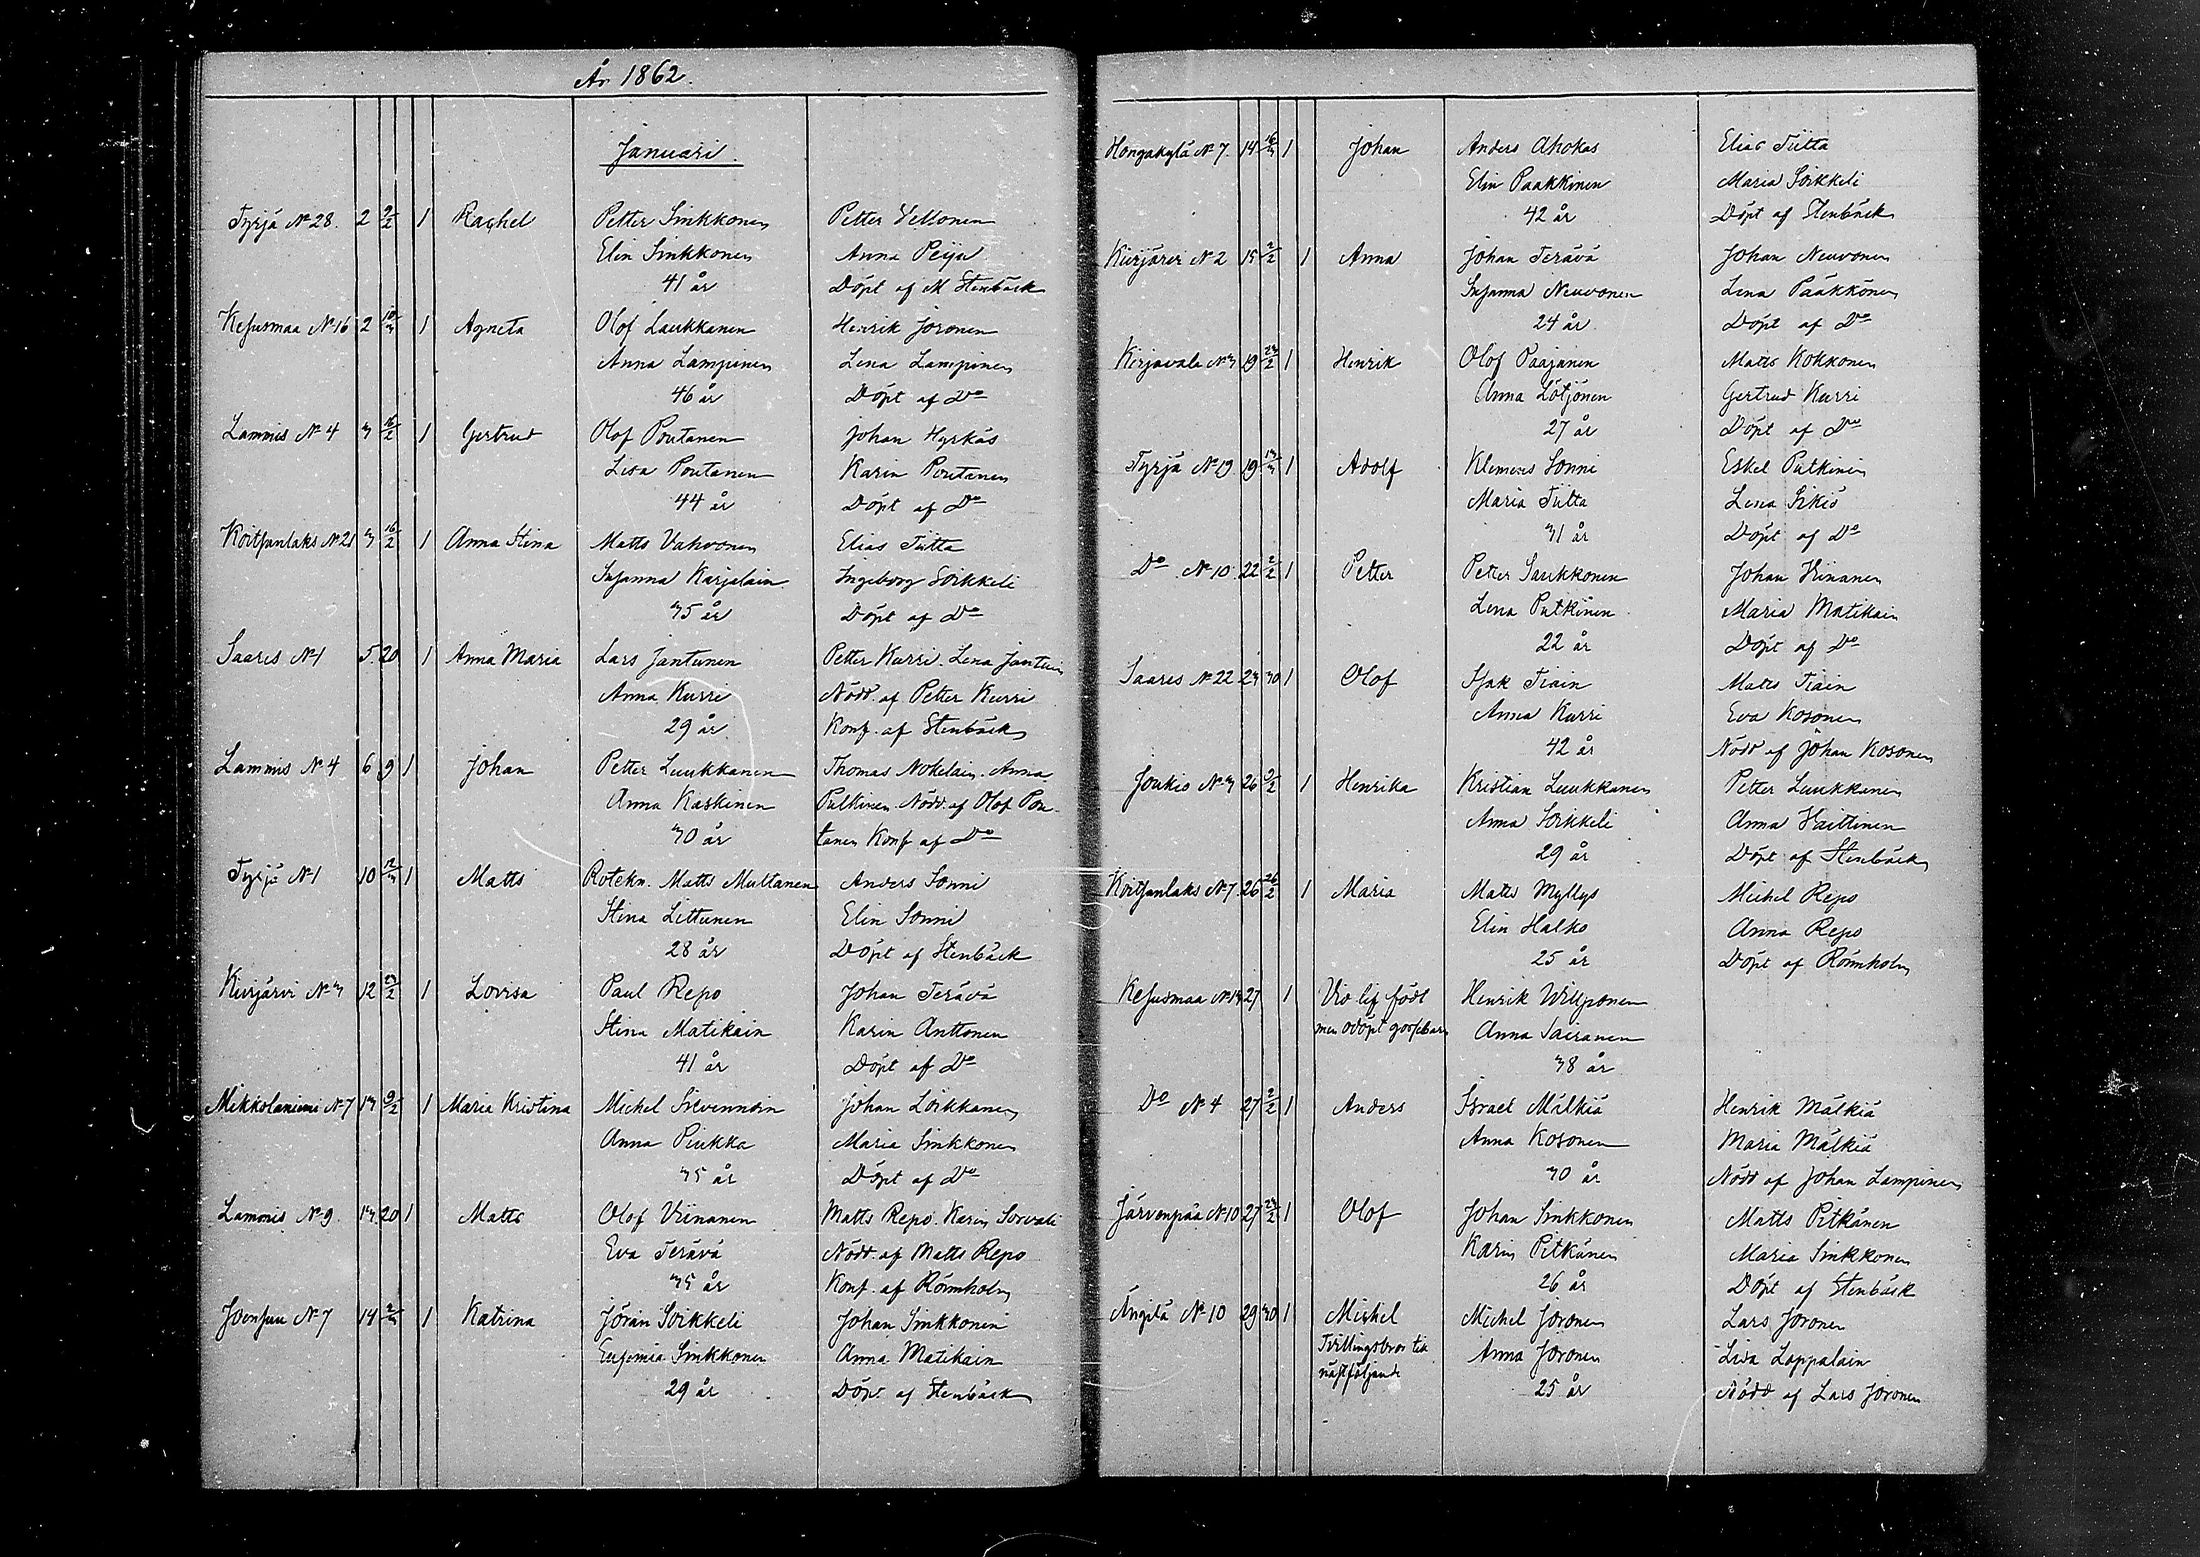 År 1862.
Januari.
Tyrjä No 28. 2 9/2 1 Rachel Petter Sinkkonen Petter Vellonen
Elin Sinkkonen Anna Peija
41 år Döpt af M Stenbäck
Kesusmaa No 16 2 10/3 1 Agneta Olof Laukkanen Henrik Joronen
Anna Lampinen Lena Lampinen
46 år Döpt af Do
Lammis No 4 3 16/2 1 Gertrud Olof Pontanen Johan Hyrkäs
Lisa Pontanen Karin Pontanen
44 år Döpt af Do
Koitsanlaks No 21 3 16/2 1 Anna Stina Matts Vahvonen Elias Tiitta
Susanna Karjalain Ingeborg Soikkeli
35 år Döpt af Do
Saaris No 1 5. 20 1 Anna Maria Lars Jantunen Petter Kurri. Lena Jantun
Anna Kurri Nöd. af Petter Kurri
29 år Konf. af Stenbäck
Lammis No 4 6 9 1 Johan Petter Luukkanen Thomas Nokelain. Anna
Anna Kaskinen Pulkinen. Nöd. af Olof Pon-
30 år tanen Konf af Do
Tyrjä No 1 10 12/3 1 Matts Rotekn. Matts Multanen Anders Sonni
Stina Littunen Elin Sonni
28 år Döpt af Stenbäck
Kivijärvi No 3 12 23/2 1 Lovisa Paul Repo Johan Terävä
Stina Matikain Karin Anttonen
41 år Döpt af Do
Mikkolaniemi No 7 13 9/2 1 Maria Kristina Michel Silvennoin Johan Loikkanen
Anna Piukka Maria Sinkkonen
35 år Döpt af Do
Lammis No 9. 13. 20 1 Matts Olof Viinanen Matts Repo. Karin Sorvali
Eva Terävä Nöd. af Matts Repo
35 år Konf. af Römholm
Joensuu No 7 14 2/3 1 Katrina Jöran Soikkeli Johan Sinkkonen
Eufemia Sinkkonen Anna Matikain
29 år Döpt af Stenbäck
Hongakylä No 7. 14 16/3 1 Johan Anders Ahokas Elias Tiitta
Elin Paakkinen Maria Soikkeli
42 år Döpt af Stenbäck
Kivijärvi No 2 15 2/2 1 Anna Johan Terävä Johan Neuvonen
Susanna Neuvonen Lena Pääkkönen
24 år Döpt af Do
Kirjavala No 3 19 23/2 1 Henrik Olof Paajanen Matts Kokkonen
Anna Lötjönen Gertrud Kurri
27 år Döpt af Do
Tyrjä No 19. 19 1 Adolf Klemens Sonni Eskel Putkinen
Maria Tiitta Lena Sikiö
31 år Döpt af Do
Do No 10. 22 2/2 1 Petter Petter Saukkonen Johan Viinanen
Lena Putkinen Maria Matikain
22 år Döpt af Do
Saaris No 22 23 30 1 Olof Isak Tiain Matts Tiain
Anna Kurri Eva Kosonen
42 år Nöd af Johan Kosonen
Joukio No 3 26 9/2 1 Henrika Kristian Luukkanen Petter Luukkanen
Anna Soikkeli Anna Haittinen
29 år Döpt af Stenbäck
Koitsanlaks No 7. 26 26/2 1 Maria Matts Myllys Michel Repo
Elin Halko Anna Repo
25 år Döpt af Römholm
Kesusmaa No 13 27 1 Vid lif född Henrik Willponen
men odöpt gosse barn Anna Sairanen
38 år
Do No 4 27 2/2 1 Anders Israel Mälkiä Henrik Mälkiä
Anna Kosonen Maria Mälkiä
30 år Nöd af Johan Lampinen
Järvenpää No 10 27 23/2 1 Olof Johan Sinkkonen Matts Pitkänen
Karin Pitkänen Maria Sinkkonen
26 år Döpt af Stenbäck
Ängilä No 10 29 30 1 Michel Michel Joronen Lars Joronen
Tvillingsbror till Anna Joronen Lisa Lappalain
nästföljande 25 år Nöd af Lars Joronen